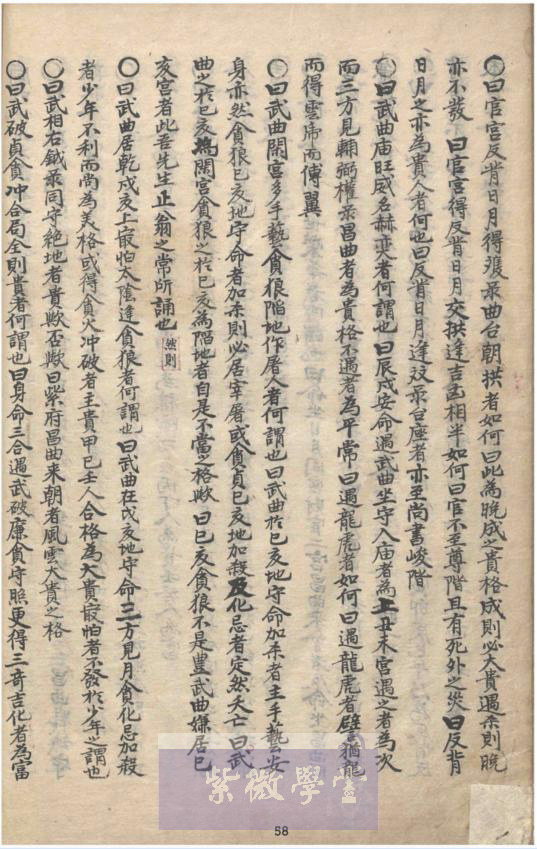 〇曰官宮反背日月得雙彔曲台朝拱者如何曰此為晚成之貴格成則必大貴遇柔則晚
亦不發 曰官宮得反背日月交拱逢吉凶相半如何曰官不至尊階且有死外之災曰反背
日月之亦為貴人者何也曰反背日月逢双彔台座者亦至尚書峻階
〇曰武曲庙旺威名赫奕者何謂也曰辰戌安命遇武曲坐守入庙者為上丑未宮遇之者為次
而三方見輔弼權彔昌曲者為貴格不遇者為平常曰遇龍虎者如何曰遇龍虎者譬猶龍
而得雲虎而傅翼
〇曰武曲閑宮多手藝貪狼陷地作屠人者何謂也曰武曲於巳亥地守命加杀者主手藝安
身亦然貪狼巳亥地守命者加杀則必居宰屠或貪貞巳亥地加殺及化忌者定然夭亡曰武
曲之於巳亥為閑宮貪狼之於巳亥為陷地者自是不當之格欤曰巳亥貪狼不是豊武曲嫌居巳
亥宮者此吾先生正翁之常所誦也 然則
〇曰武曲居乾戌亥上㝡怕太陰逢貪狼者何謂也曰武曲在戌亥地守命三方見月貪化忌加殺
者少年不利而尚為美格或得貪火冲破者主貴甲巳壬人合格為大貴㝡怕者不發於少年之謂也
〇曰武相右鉞彔同守絶地者貴欤否欤曰紫府昌曲来朝者風雲大貴之格
〇曰武破貞貪冲合局全則貴者何謂也曰身命三合遇武破廉貪守照更得三奇吉化者為富
紫微學堂
58